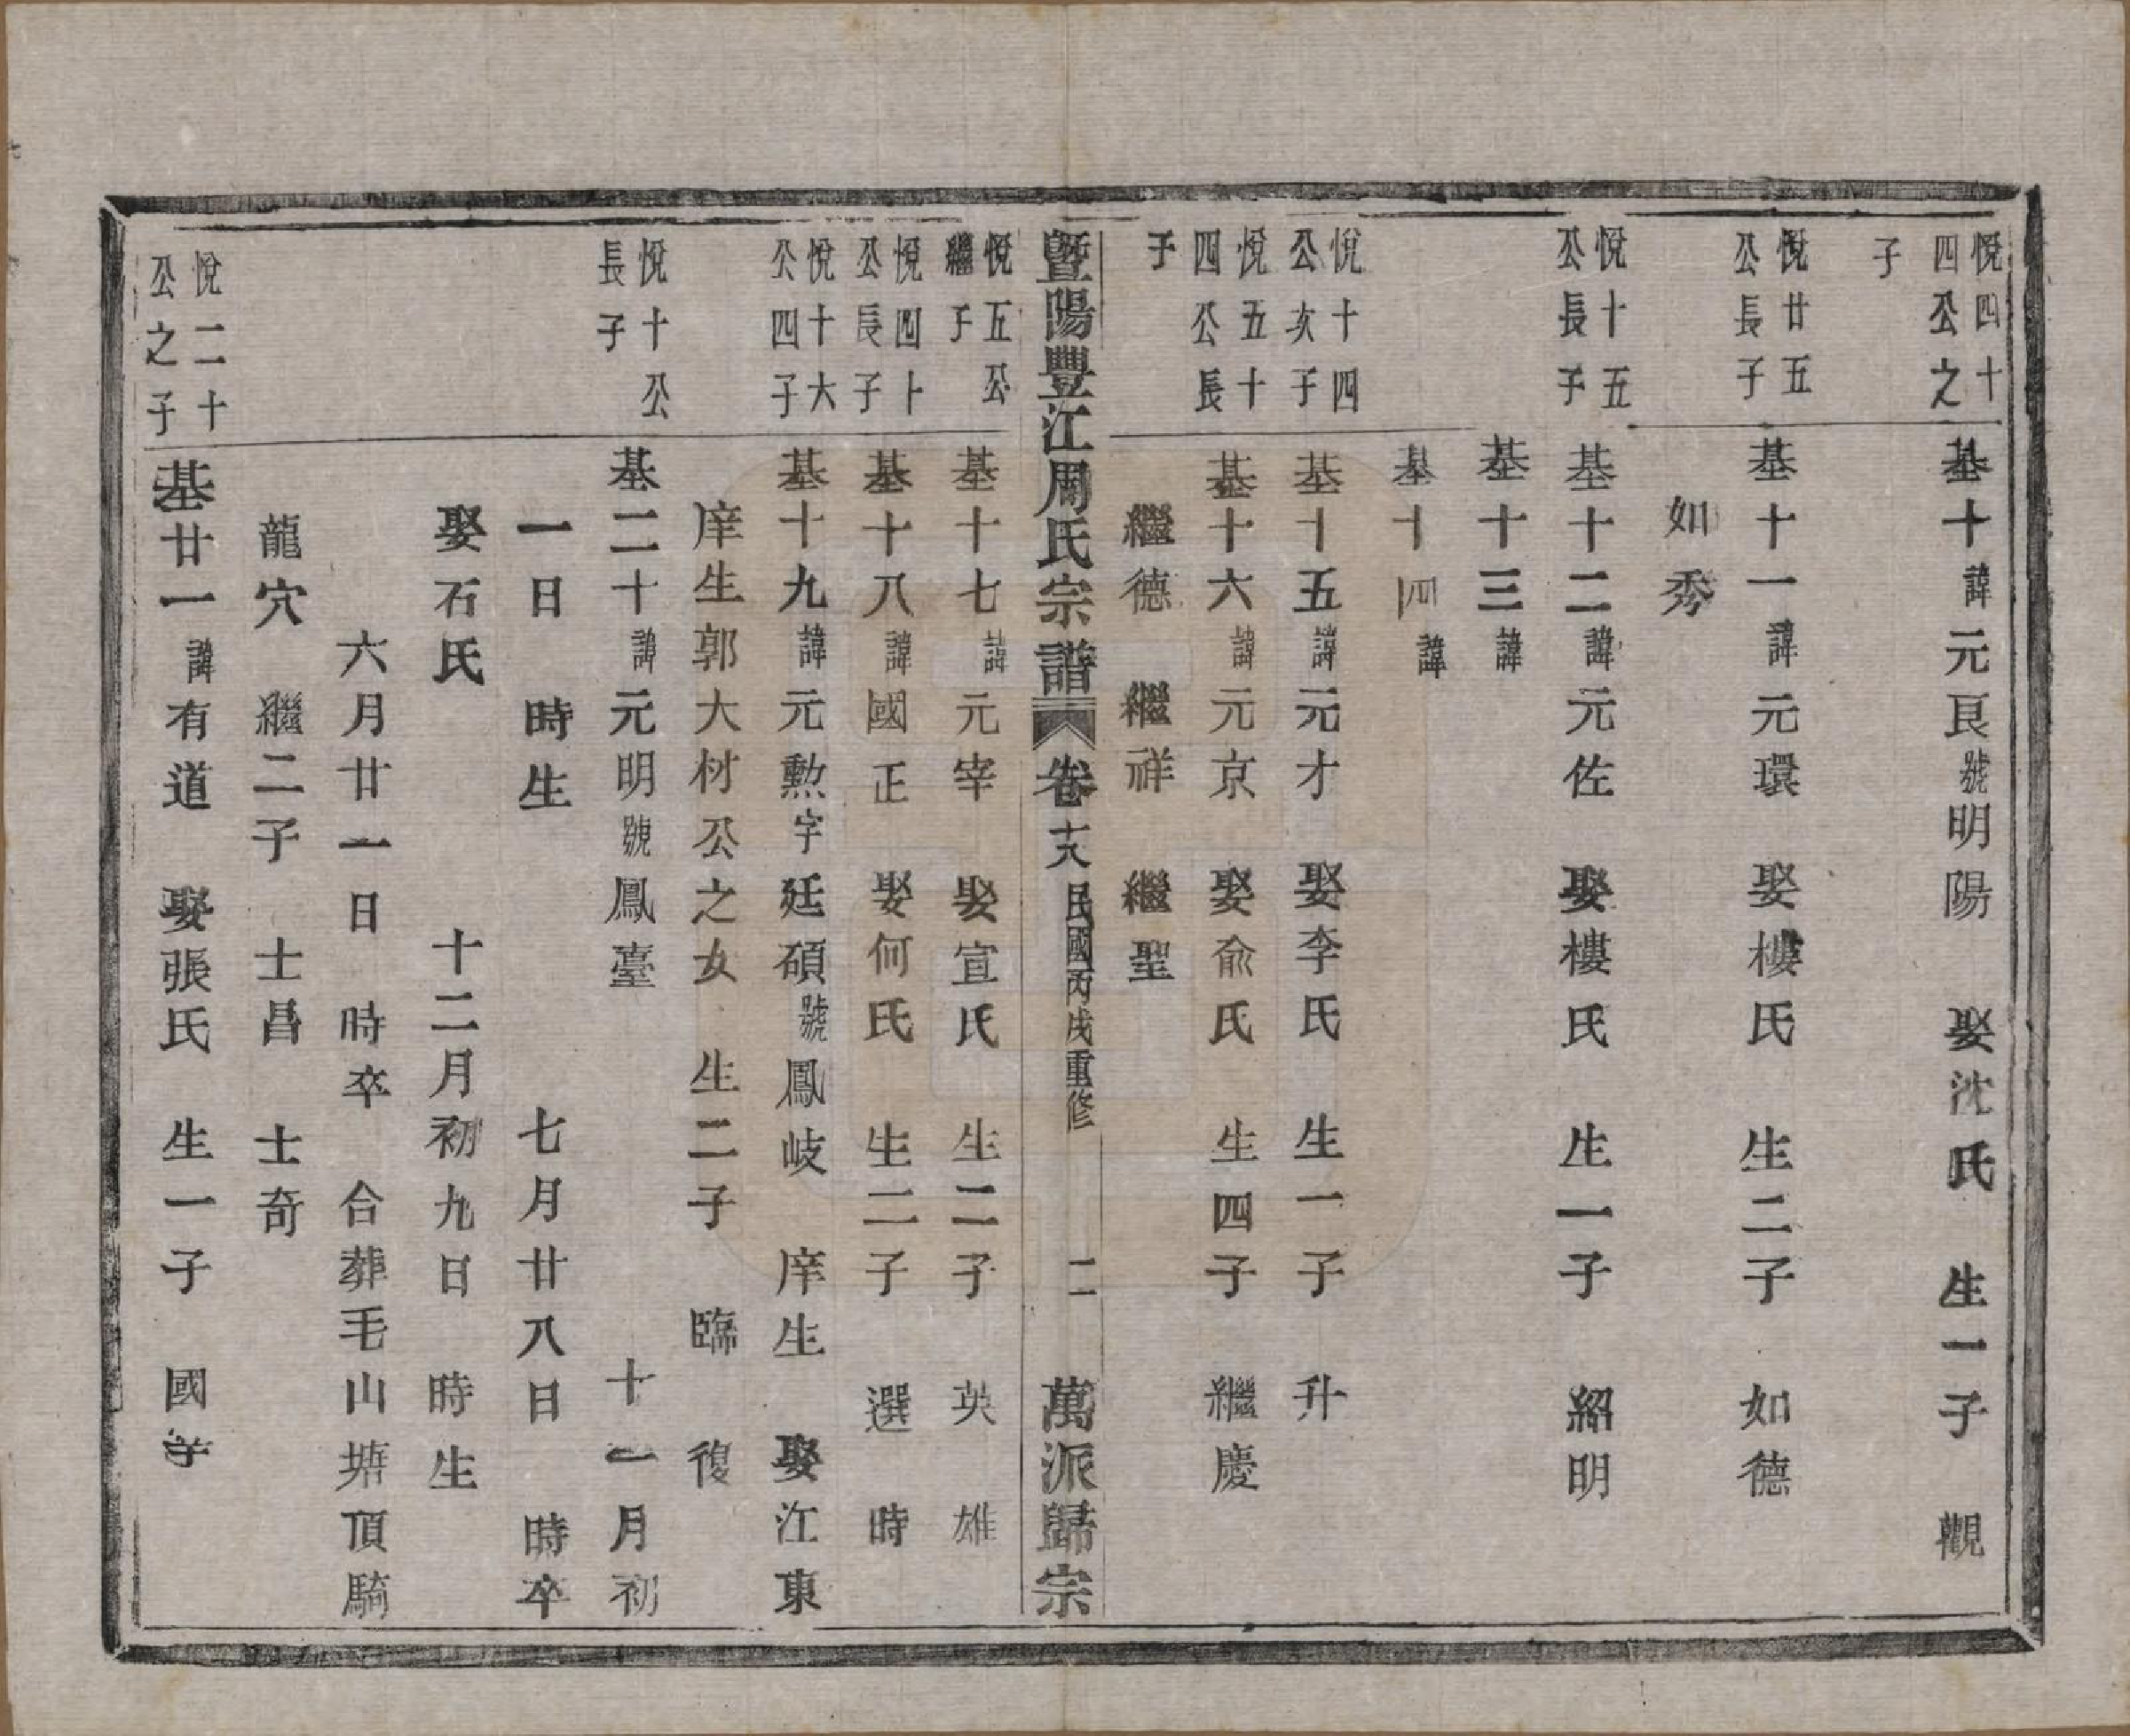 悅四十
四公之
子
基十諱元良號明陽 娶沈氏 生一子 觀
悅廿五
公長子
基十一諱元環 娶樓氏 生二子 如德
如秀
悅十五
公長子
基十二諱元佐 娶樓氏 生一子 紹明
基十三諱
基十四諱
悅十四
公次子
基十五諱元才 娶李氏 生一子 升
悅五十
四公長
子
基十六諱元京 娶俞氏 生四子 繼慶
繼德 繼祥 繼聖
暨陽豐江周氏宗譜 卷十八 民國丙戌重修 二 萬派歸宗
悅五公
繼子
基十七諱元宰 娶宣氏 生二子 英 雄
悅四十
公長子
基十八諱國正 娶何氏 生二子 選 時
悅十大
公四子
基十九諱元勲字廷碩號鳳岐 庠生 娶江東
庠生郭大材公之女 生二子 臨 復
悅十公
長子
基二十諱元明號鳳臺 十一月初
一日 時生 七月廿八日 時卒
娶石氏 十二月初九日 時生
六月廿一日 時卒 合葬毛山塘頂騎
龍穴 繼二子 士昌 士奇
悅二十
公之子
基廿一諱有道 娶張氏 生一子 國